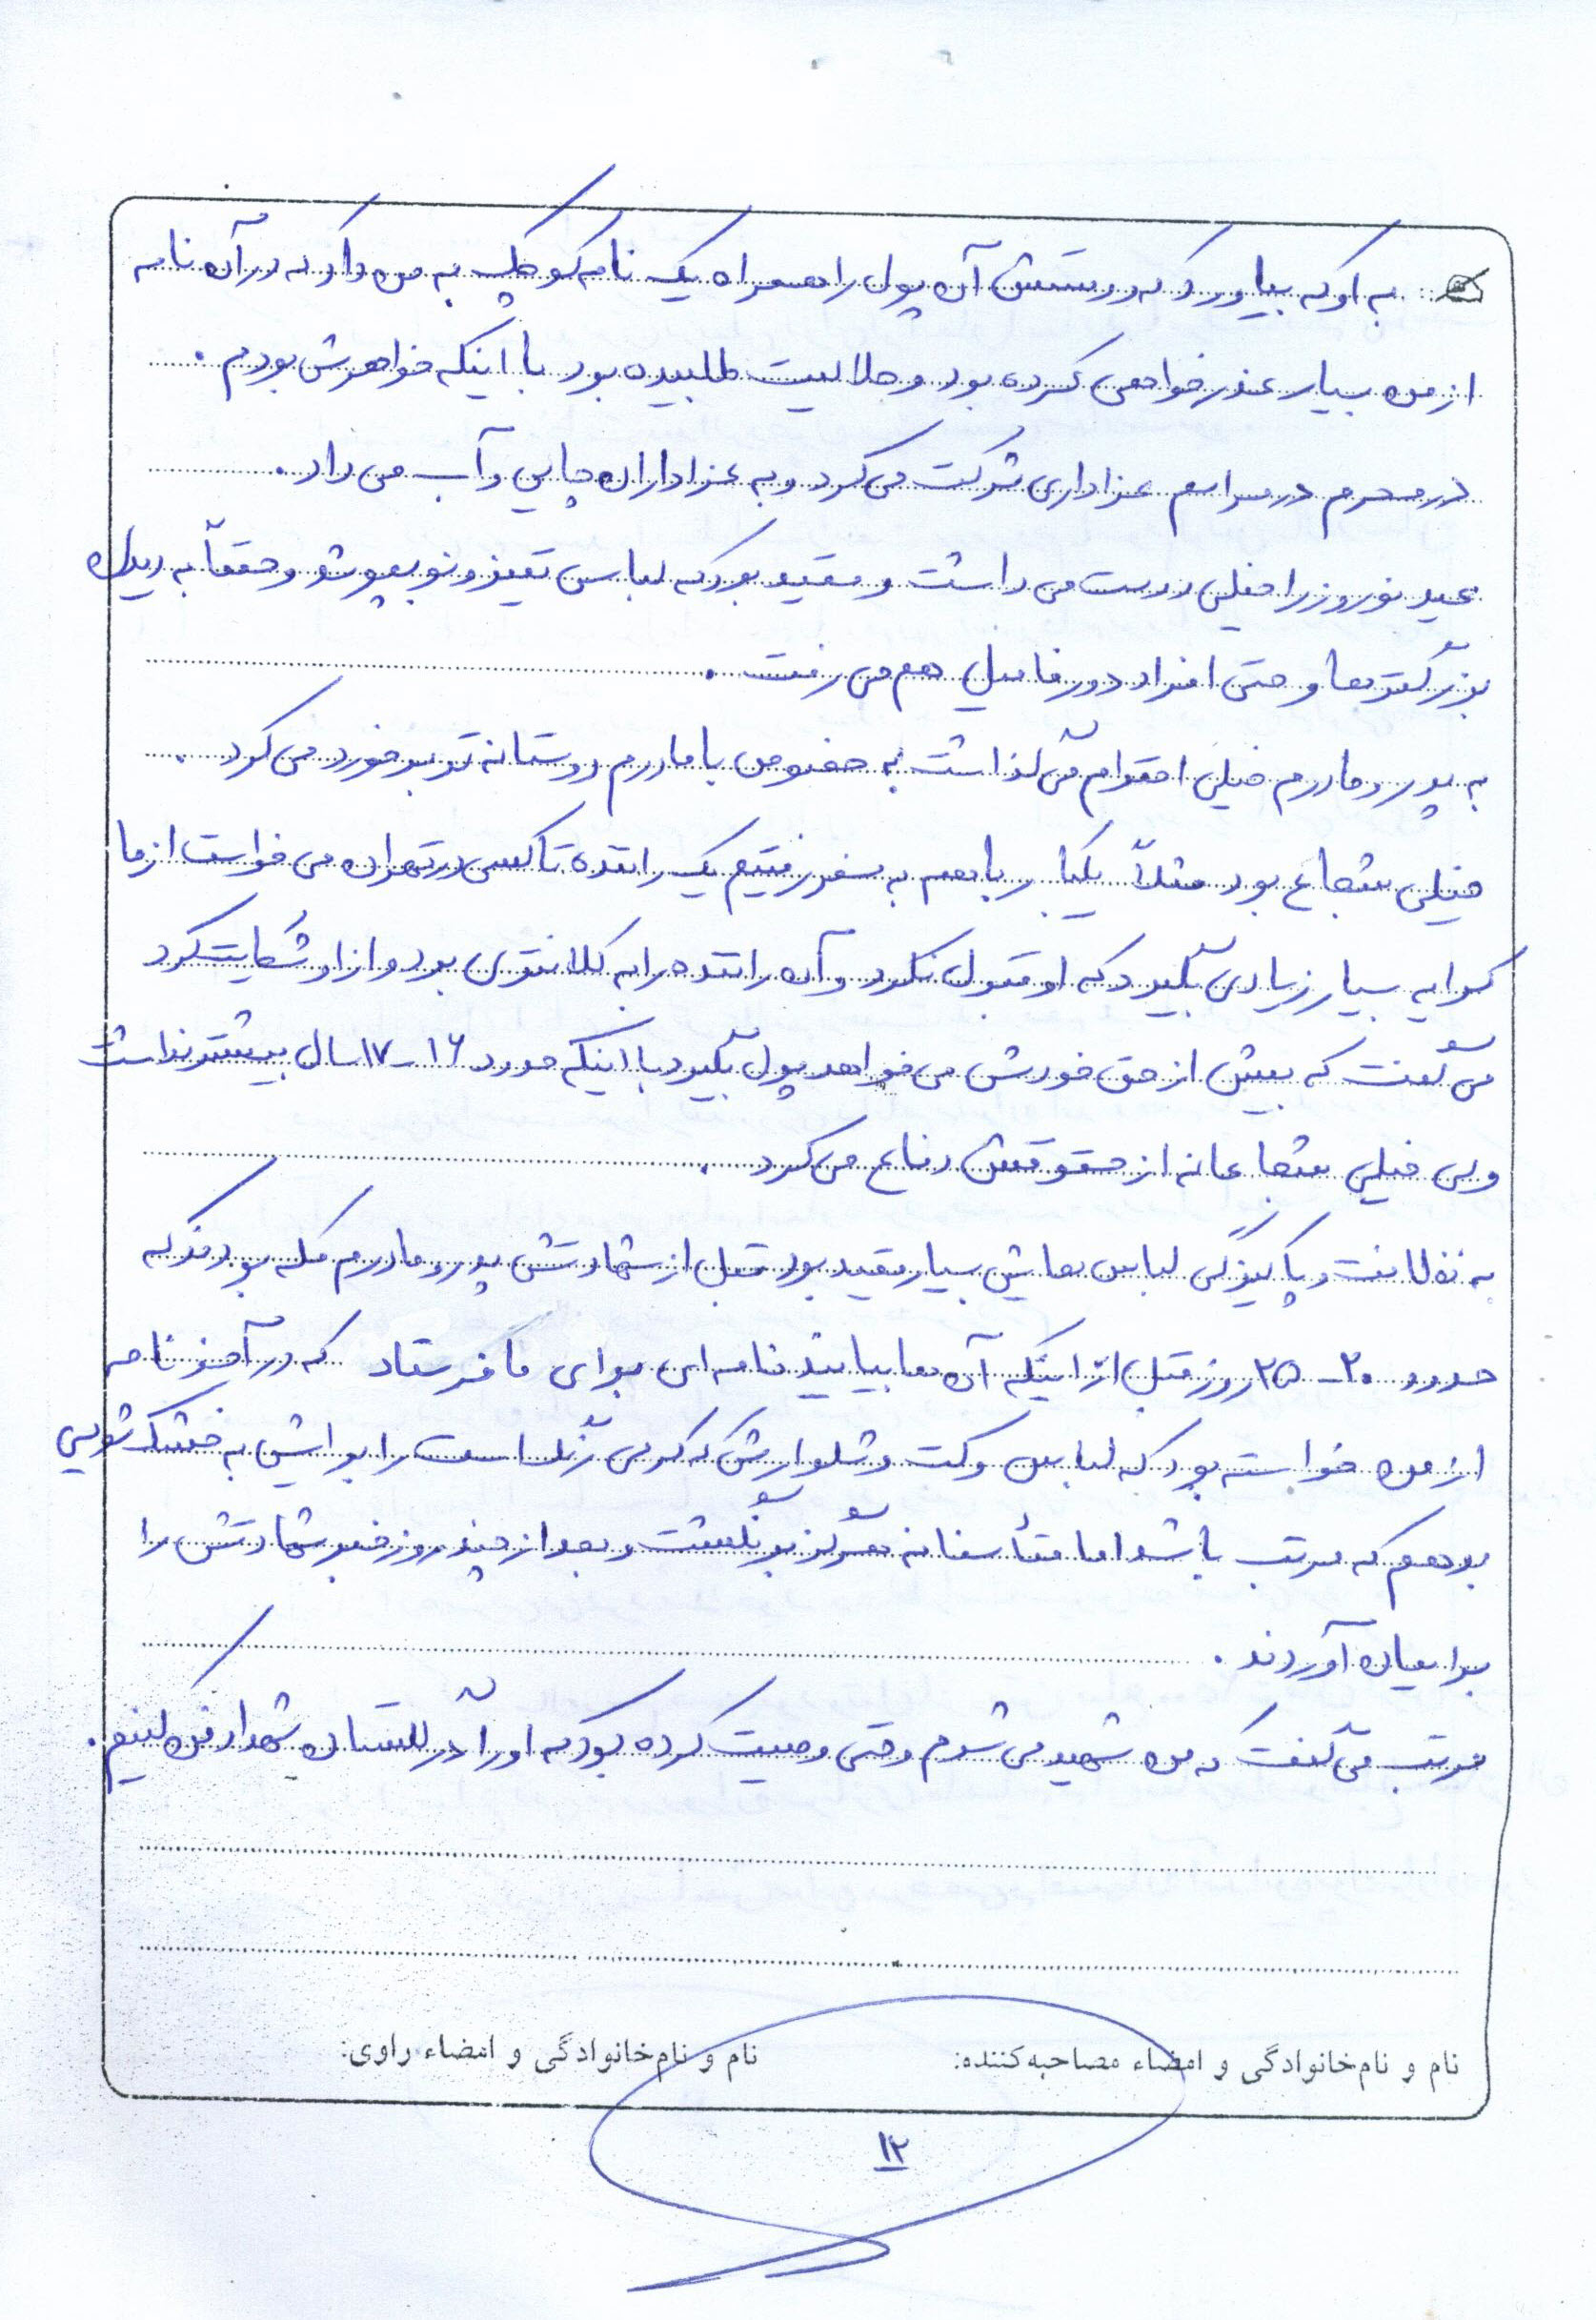 به او که بیاورد که دوستش آن پول را همراه یک نامه کوچک به من داد که در آن نامه
از من بسیار عذرخواهی کرده بود و حلالیت طلبیده بود با اینکه خواهرش بودم.
در محرم در مراسم عزاداری شرکت می‌کرد و به عزاداران چایی و آب می داد.
عید نوروز را خیلی دوست می داشت و مقید بود که لباس تمیز و نو بپوشد و حتماً به دیدن
بزرگترها و حتی افراد دور فامیل هم می رفت.
به پدر و مادرم خیلی احترام می گذاشت به خصوص با مادرم دوستانه تر برخورد می کرد.
خیلی شجاع بود مثلاً یکبار با هم به سفر رفتیم یک راننده تاکسی در تهران می خواست از ما
کرایه بسیار زیادی بگیرد که او قبول نکرد و آن راننده را به کلانتری برد و از او شکایت کرد
می گفت که بیش از حق خودش می خواهد پول بگیرد با اینکه حدود ۱۶-۱۷ سال بیشتر نداشت
ولی خیلی شجاعانه از حقوقش دفاع می کرد.
به نظافت و پاکیزگی لباس هایش بسیار مقید بود قبل از شهادتش پدر و مادرم مکه بودند که
حدود ۲۰-۲۵ روز قبل از اینکه آن ها بیایند نامه ای برای ما فرستاد که در آخر نامه
از من خواسته بود که لباس وکت و شلوارش که کرمی رنگ است را برایش به خشک شویی
بدهم که مرتب باشد اما متأسفانه هرگز برنگشت و بعد از چند روز خبر شهادتش را
برایمان آوردند.
مرتب می گفت که من شهید می شوم و حتی وصیت کرده بود که او را در گلستان شهدا دفن کنیم.
نام و نام‌خانوادگی و امضاء مصاحبه‌کننده: نام و نام‌خانوادگی و امضاء راوی:
۱۲